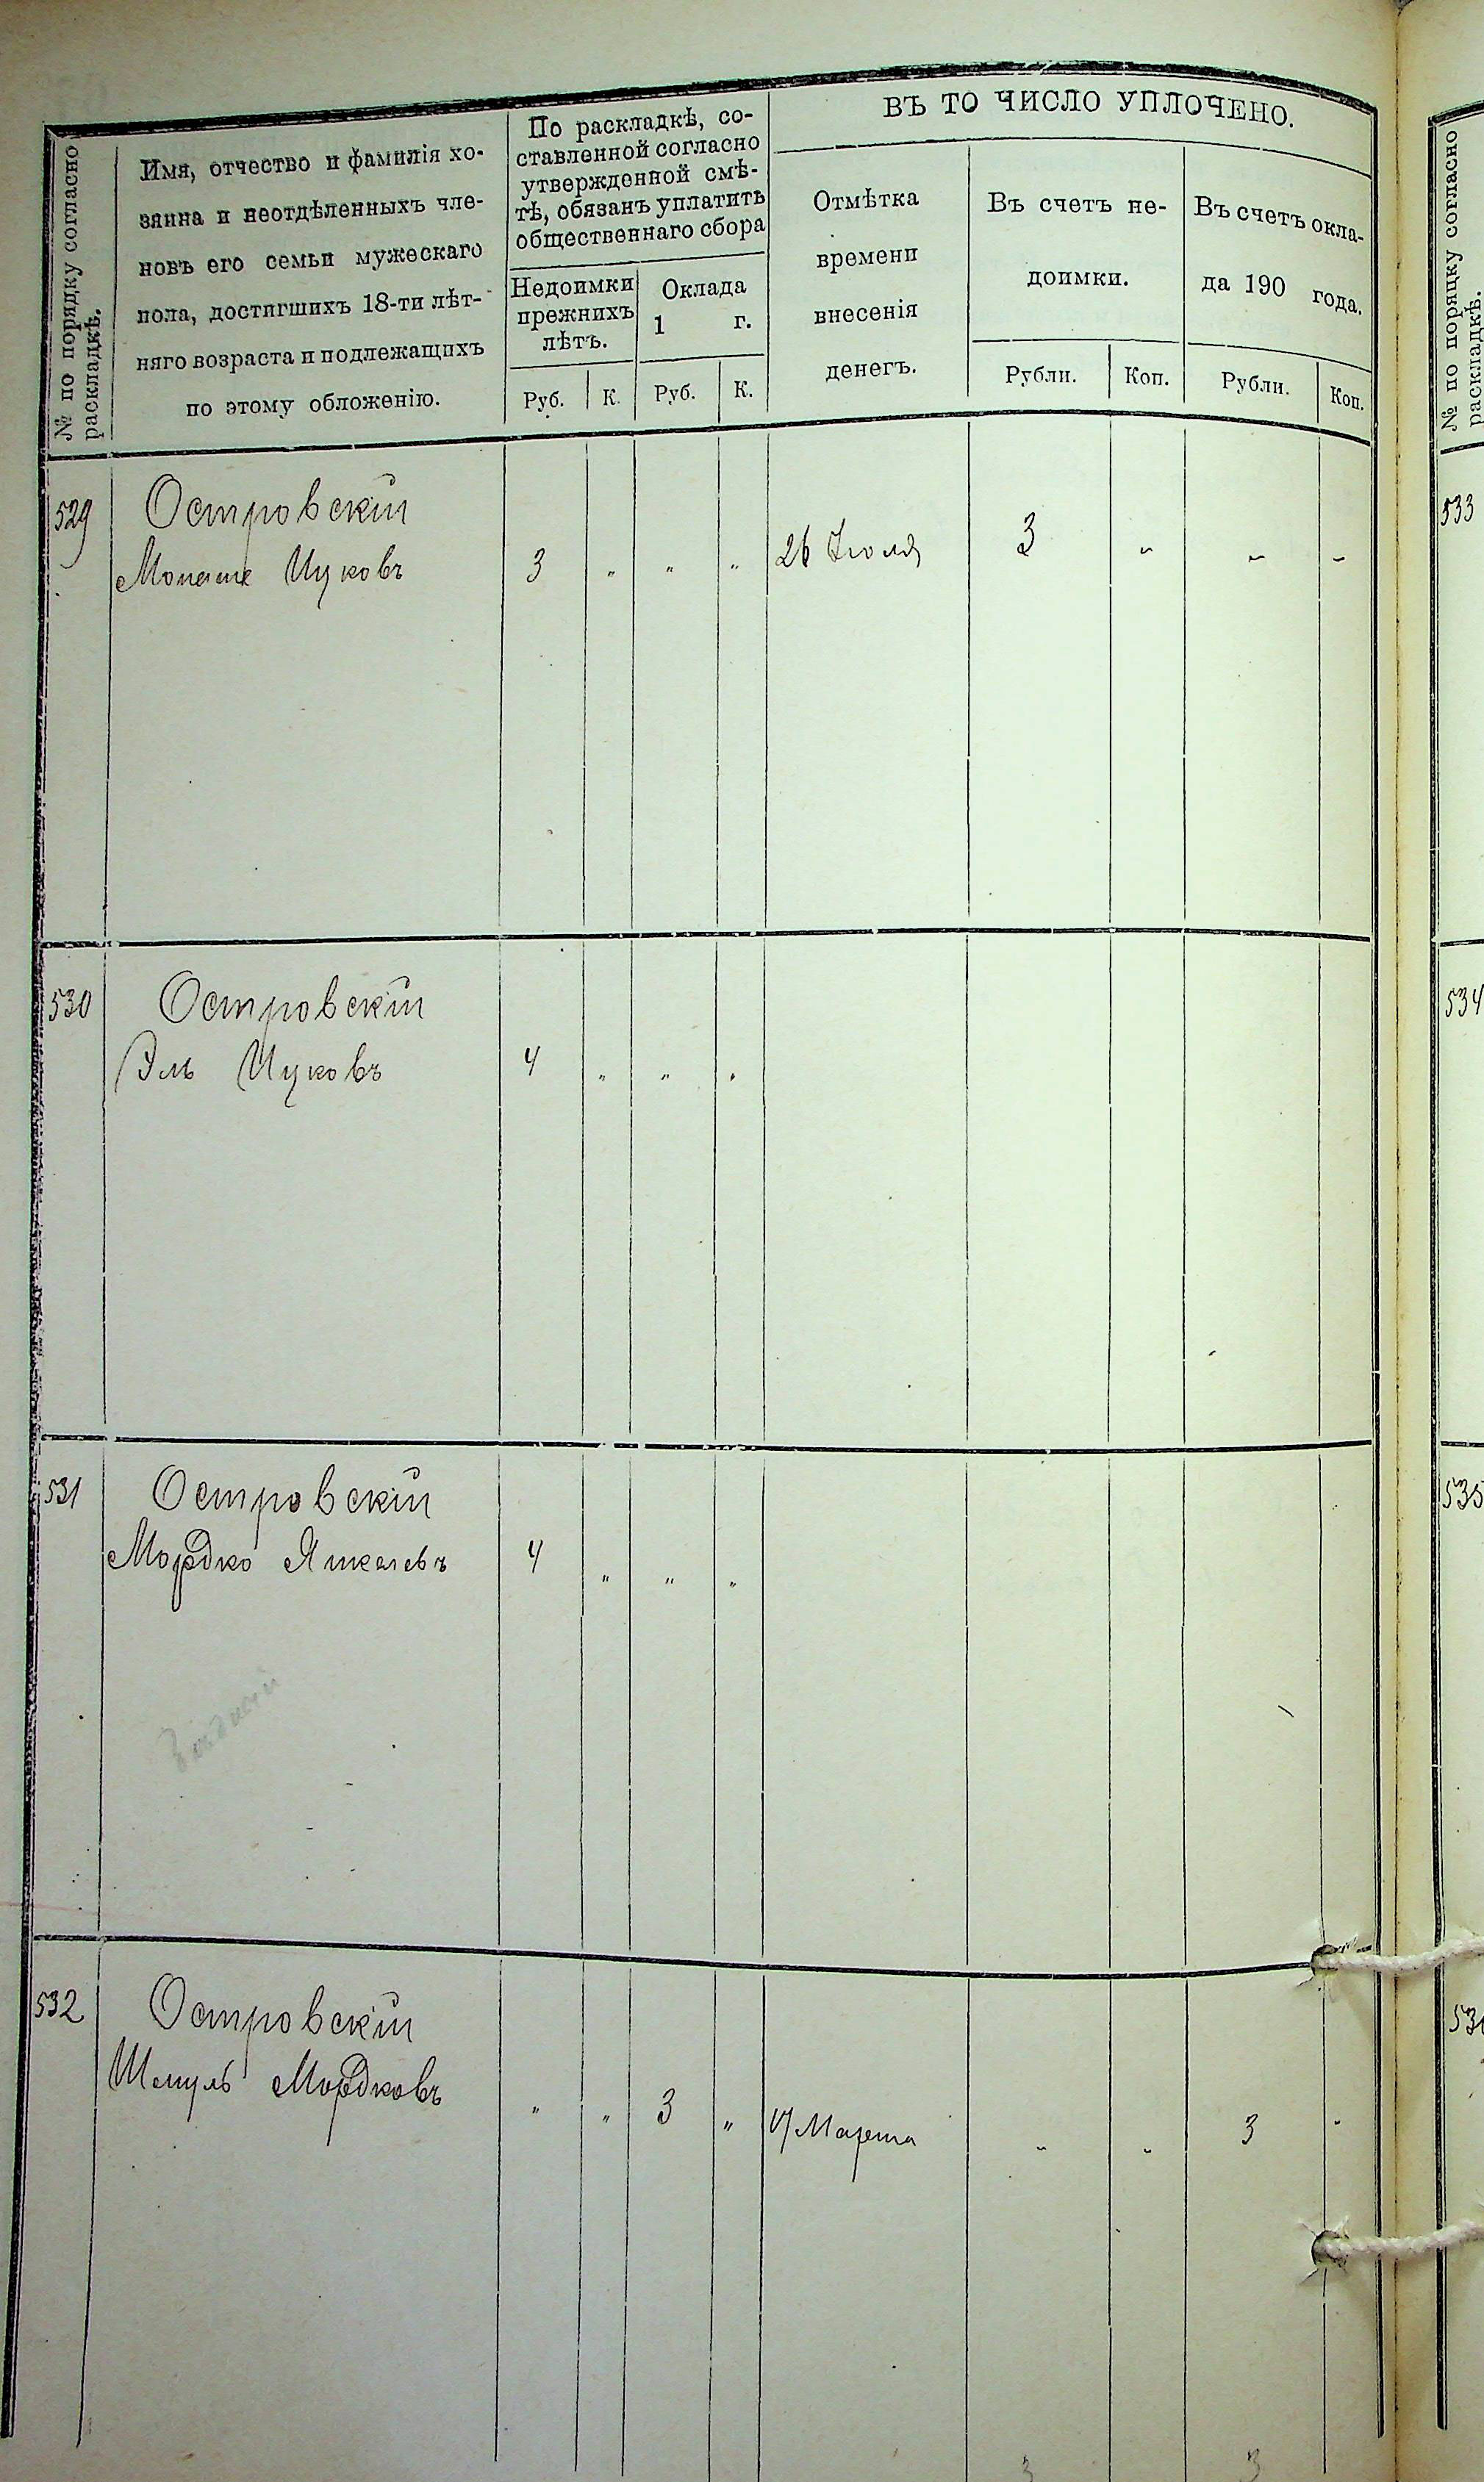 № по порядку согласно
раскладкѣ.
Имя, отчество и фамилія хо-
зяина и неотдѣленныхъ чле-
новъ его семьи мужескаго
пола, достигшихъ 18-ти лѣт-
няго возраста и подлежащихъ
по этому обложенію.
По раскладкѣ, со-
ставленной согласно
утвержденной смѣ-
тѣ, обязанъ уплатить
общественнаго сбора
Недоимки
прежнихъ
лѣтъ.
Оклада
1 г.
Руб. К. Руб. К.
ВЪ ТО ЧИСЛО УПЛОЧЕНО.
Отмѣтка
времени
внесенія
денегъ.
Въ счетъ не-
доимки.
Рубли. Коп.
Въ счетъ окла-
да 190 года.
Рубли. Коп.
529 Островскій
Монаше Ицковъ 3 " " " 26 Іюля 3 " " "
530 Островскій
Эль Ицковъ 4 " " "
531 Островскій
Мордко Янкелевъ 4 " " "
532 Островскій
Шмуль Мордковъ " " 3 " 17 Марта " " 3 "
3 3
№ по порядку согласно
раскладкѣ.
533
534
535